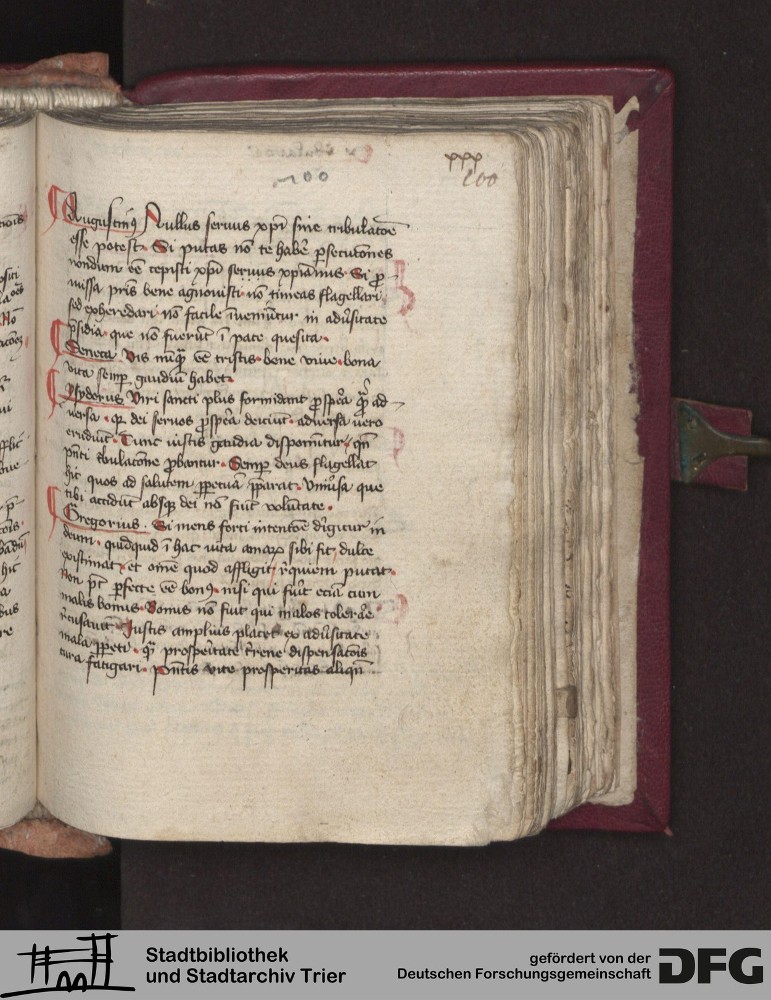 xxx
200
Augustin9 Nullus seruus xpi sine tribulatoe
esse potest. Si putas no te habe psecutones
nondum ee cepisti xpi seruus xpianus. Si p
missa pris bene agnouisti no timeas flagellari
sed exheredari no facile inueniutur in adusitate
psidia. que no fuerut i pace quesita.
Seneca Vis nuq ee tristis. bene viue. bona
vita semp gaudiu habet.
Ysyderus Viri sancti plus formidant pspea q ad
versa. q dei seruos pspea deiciut. aduersa uero
erudiut. Tunc iustis gaudia disponutur qn
pnti tbulacone pbantur. Semp deus flagellat
hic quos ad salutem ppetua pparat. Vniusa que
tibi accidut absq dei no fiut volutate.
Gregorius. Si mens forti intentoe dirigitur in
deum. quidquid i hac uita amar sibi fit, dulce
existimat et ome quod affligit requiem putat.
Non pt pfecte ee bon9. nisi qui fuit ecia cum
malis bonus. Bonus no fuit qui malos tolerare
recusauit. Iustis amplius placet ex adusitate
mala ppeti. q prosperitate trene dispensatois
cura fatigari. pntis vite prosperitas aliqn
Stadtbibliothek
und Stadtarchiv Trier
gefördert von der
Deutschen Forschungsgemeinschaft
DFG